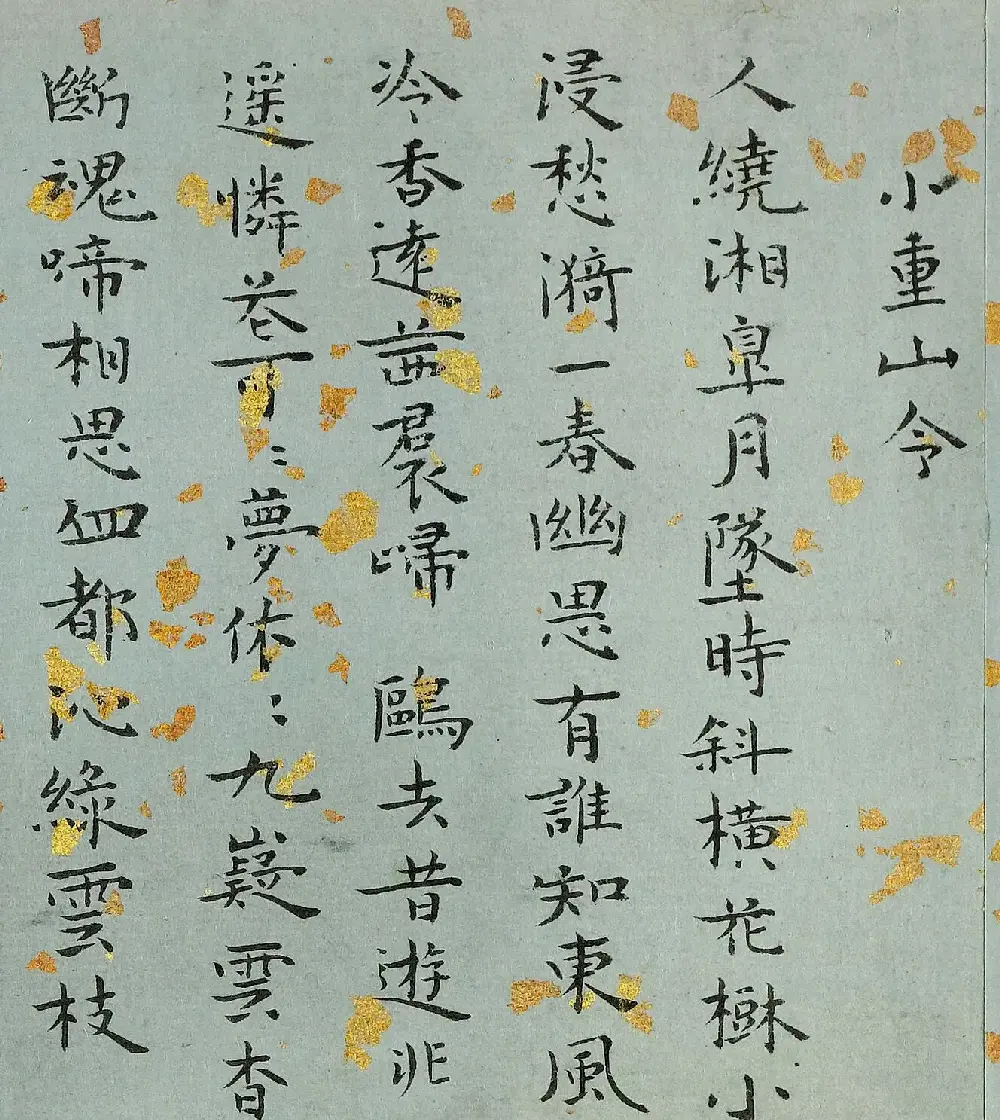 小重山令
人繞湘皐月墜時斜橫花樹小
浸愁漪一春幽思有誰知東風
冷香遠茜裠歸　鷗去昔遊非
遥憐花可〻夢依〻九嶷雲杳
斷魂啼相思血都沁綠雲枝